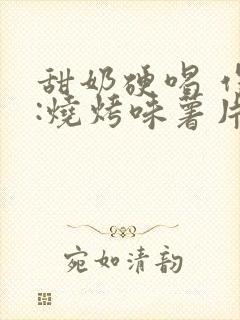 甜奶硬唱
:燒烤味薯片
宛如清韵